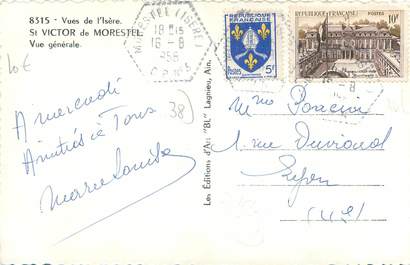 8315 - Vues de l'Isère.
St VICTOR de MORESTEL
Vue générale.
10€
MORESTEL (ISERE)
18 H15
16 - 8
956
C.P. N°5
REPUBLIQUE FRANÇAISE
Postes
5F
REPUBLIQUE FRANÇAISE
10F
38
A mercredi
Amitiés à Tous
Marie Louise
Les Éditions d'Art "BL" Lagnieu, Ain.
Mme
1. Rue